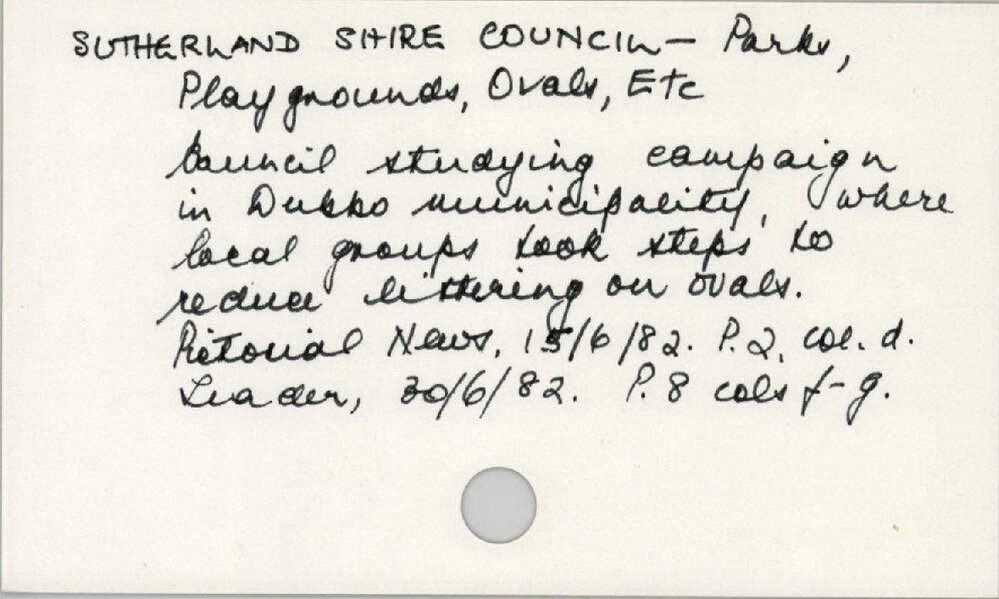 SUTHERLAND SHIRE COUNCIL - Parks,
Playgrounds, Ovals, Etc
Council studying campaign
in Dubbo municipality, where
local groups took steps to
reduce littering on ovals.
Pictorial News, 15/6/82. P.2, col. d.
Leader, 30/6/82. P.8 cols f-g.